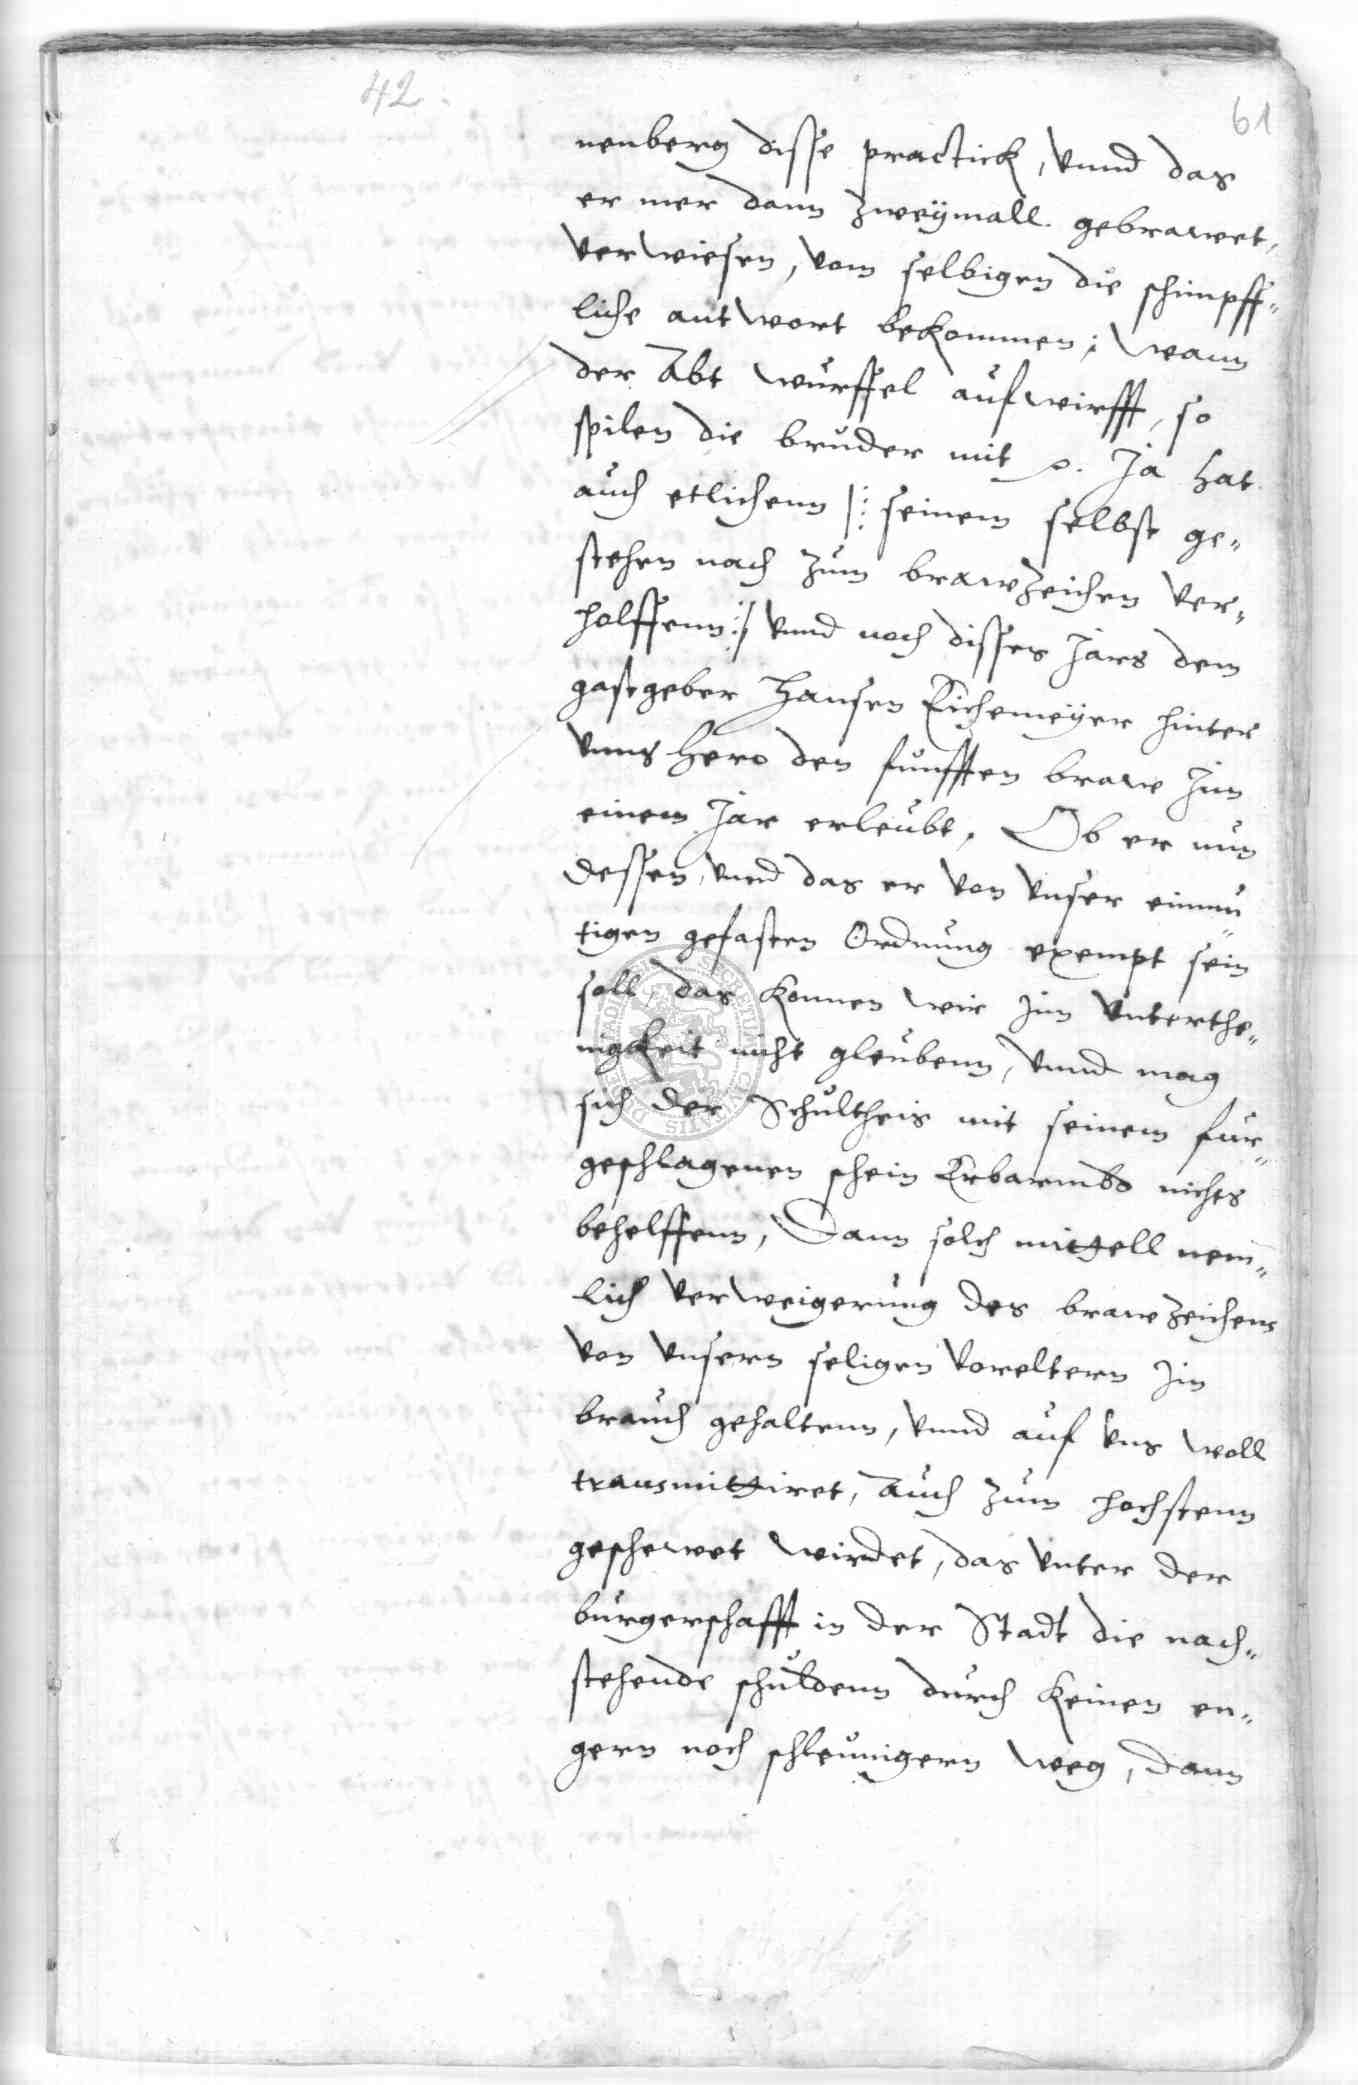 42
61
nenberg disse practick, vnnd das
er mer dann zweÿmall gebrawet,
verwiesen, vom selbigen die schimpff=
liche antwort bekommen; Wann
der Abt würffel aufwirfft, so
spilen die brüder mit p. Ja hat
auch etlichenn /: seinem selbst ge=
stehen nach zum brawzeichen ver=
holffenn :/ vnnd noch disses Jars dem
gastgeber Hansen Eichemeÿer hinter
vnns hero den funfften braw Jnn
einem Jar erleubt, Ob er nun
dessen, vnnd das er von vnser einmu=
tigen gefasten Ordnung exempt sein
soll das konnen wir Jnn vnterthe=
nigkeit nicht gleubenn, vnnd mag
sich der Schultheis mit seinem fur=
geschlagenen schein Erbarmbs nichts
behelffenn, Dann solch mittell nem=
lich verweigerung des brawzeichens
von vnsern seligen Voreltern Jnn
brauch gehaltenn, vnnd auf vns woll
transmittiret, Auch zum hochstenn
geschewet wirdet, das vnter der
burgerschafft in der Stadt die nach=
stehende schuldenn durch keinen en=
gern noch schleunigern weg, dann
SECRETUM CIVITATIS